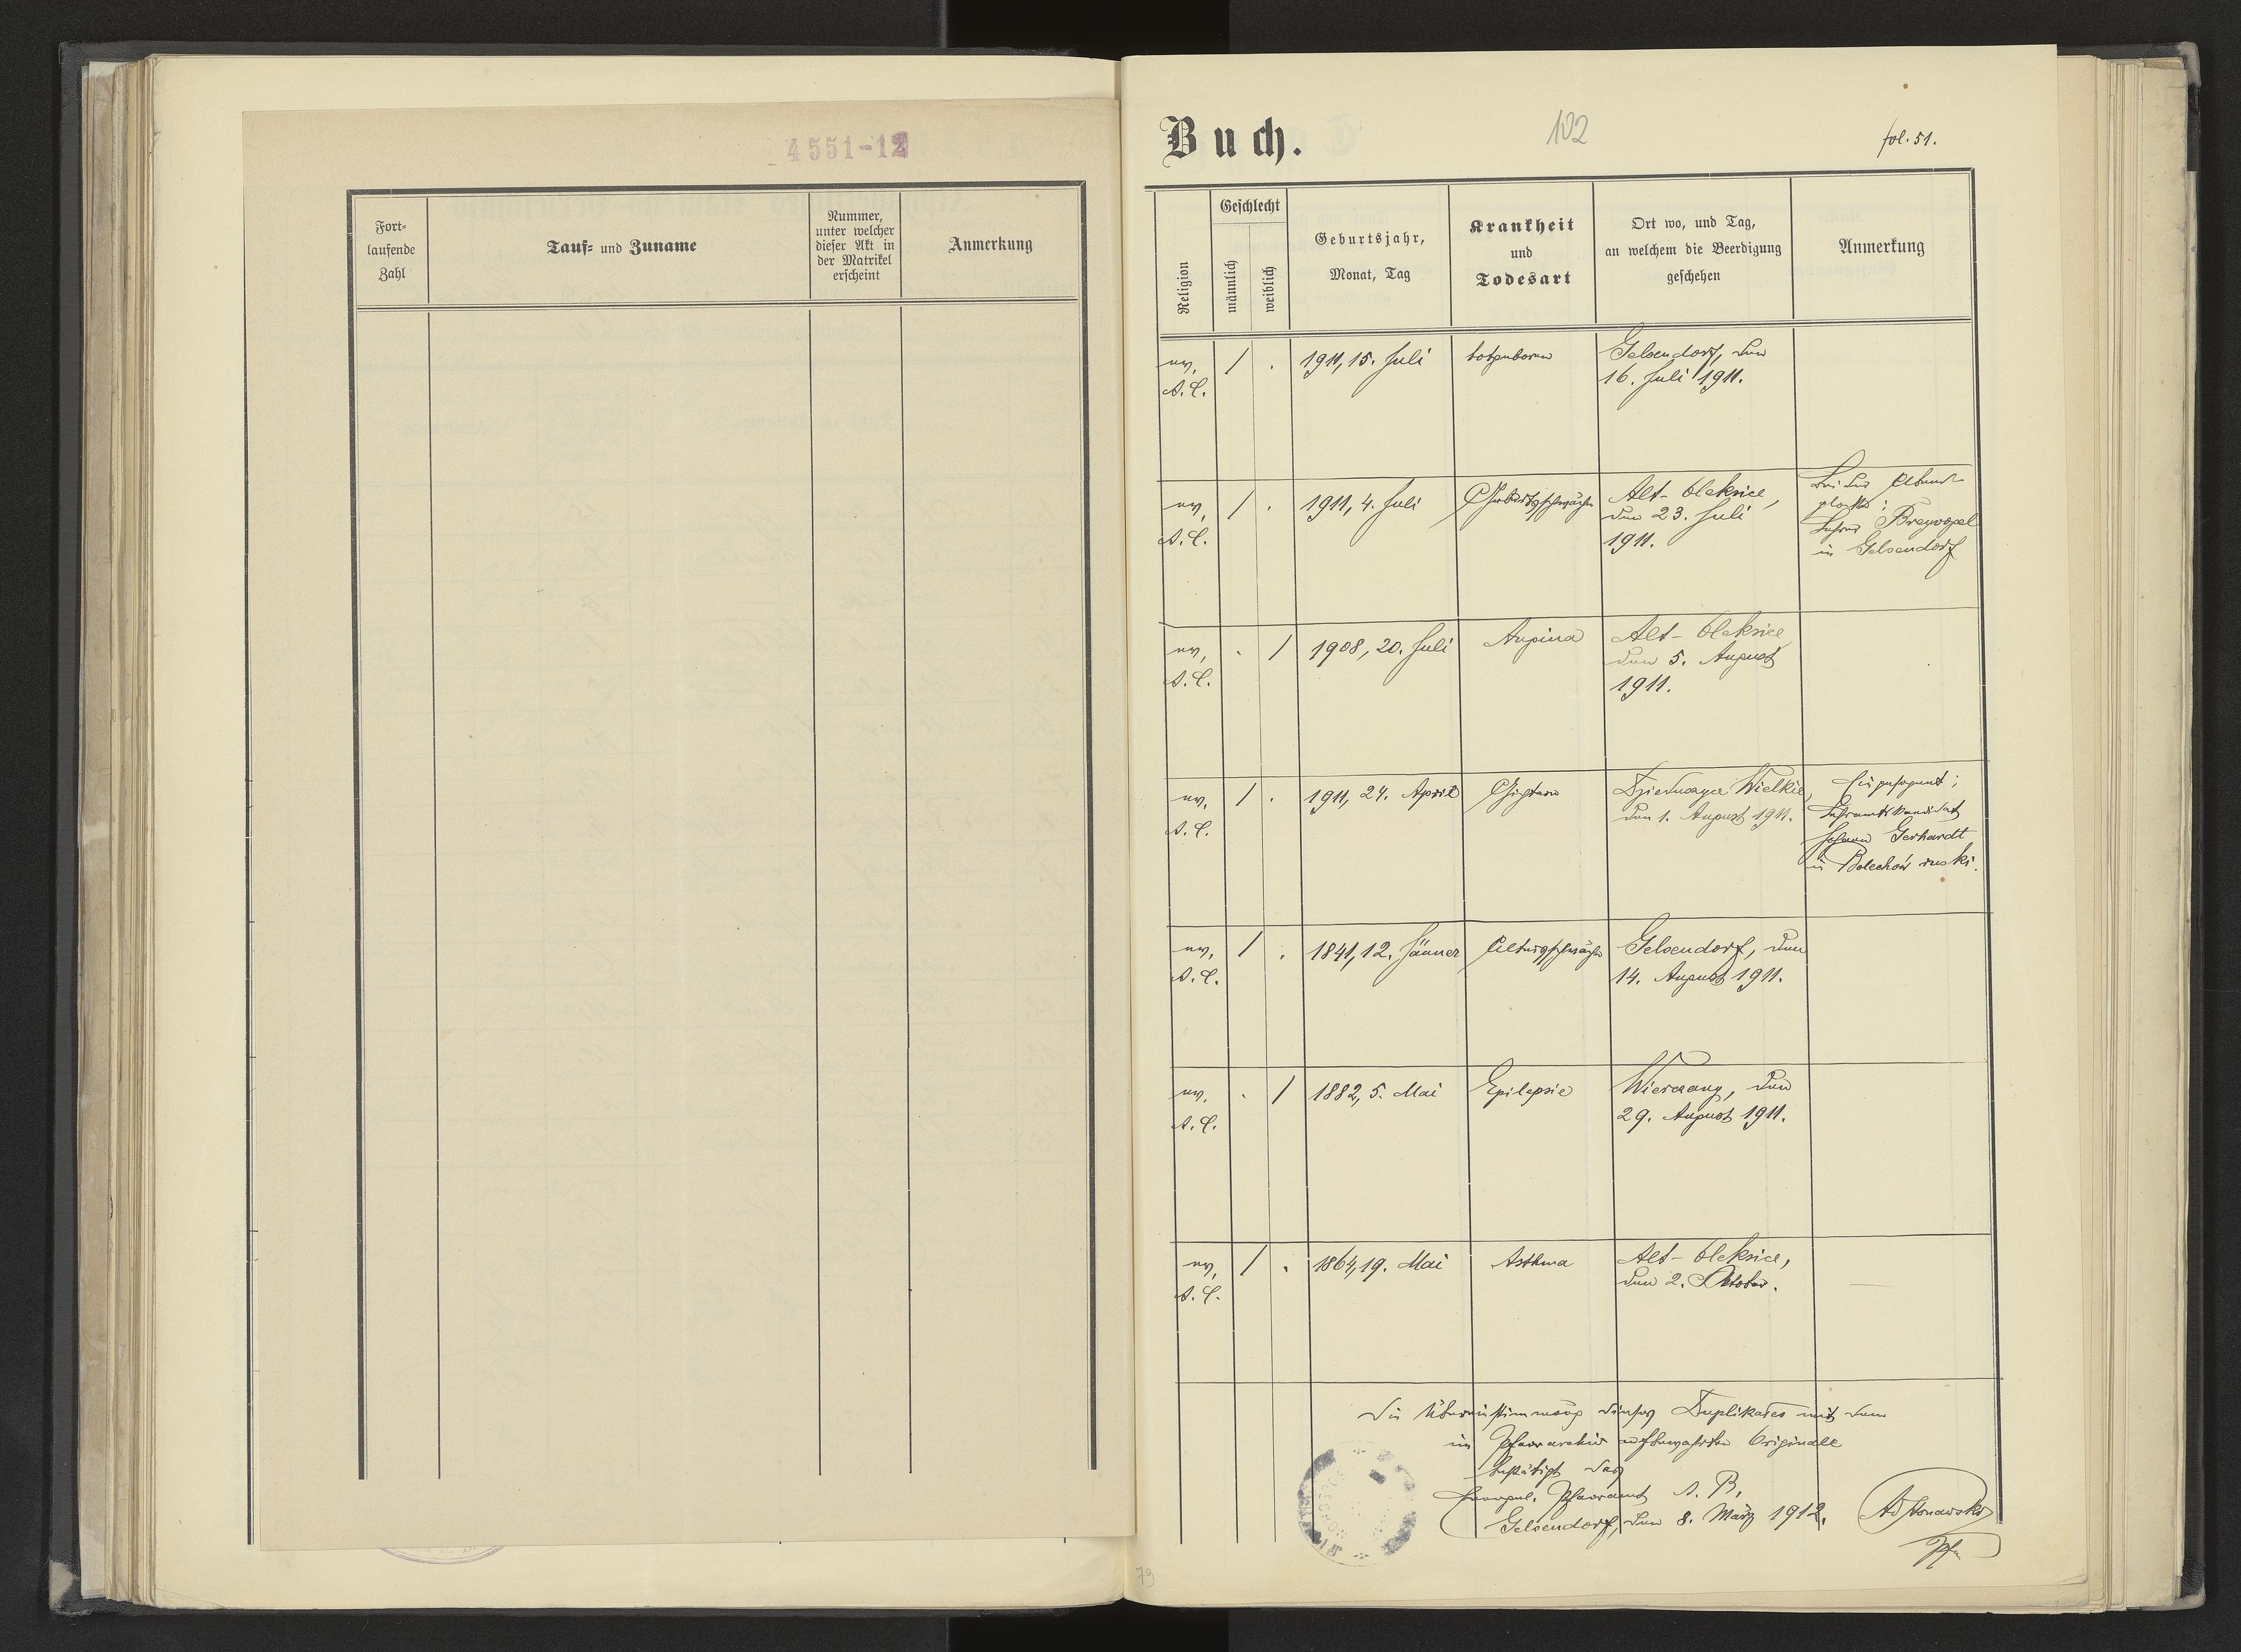 4551-12
Fort-
laufende
Zahl
Tauf= und Zuname
Nummer,
unter welcher
dieser Akt in
der Matrikel
erscheint
Anmerkung
Buch.
102
fol. 51.
Religion
Geschlecht
männlich
weiblich
Geburtsjahr,
Monat, Tag
Krankheit
und
Todesart
Ort wo, und Tag,
an welchem die Beerdigung
geschehen
Anmerkung
ev.
A. C.
/ .
1911, 15. Juli
totgeboren
Gelsendorf, den
16. Juli 1911.
ev.
A. C.
/ .
1911, 4. Juli
Geburtsschwäche
Alt-Oleksice,
den 23. Juli
1911.
Lehrer Breyvogel
in Gelsendorf
ev.
A. C.
. /
1908, 20. Juli
Angina
Alt-Oleksice
den 5. August
1911.
ev.
A. C.
/ .
1911, 24. April
Dzieduszyce Wielkie,
den 1. August 1911.
Eingesegnet:
Lehramtskandidat
Johann Gerhardt
in Bolechów ruski.
ev.
A. C.
/ .
1841, 12. Jänner
Altersschwäche
Gelsendorf, den
14. August 1911.
ev.
A. C.
. /
1882, 5. Mai
Epilepsie
Wierczany, den
29. August 1911.
ev.
A. C.
/ .
1864, 19. Mai
Asthma
Alt-Oleksice,
den 2. Oktober.
Die Übereinstimmung dieses Duplikates mit dem
im Pfarrarchiv aufbewahrten Originale
bestätigt das
Evangel. Pfarramt A. B.
Gelsendorf, den 8. März 1912.
Pfr
79